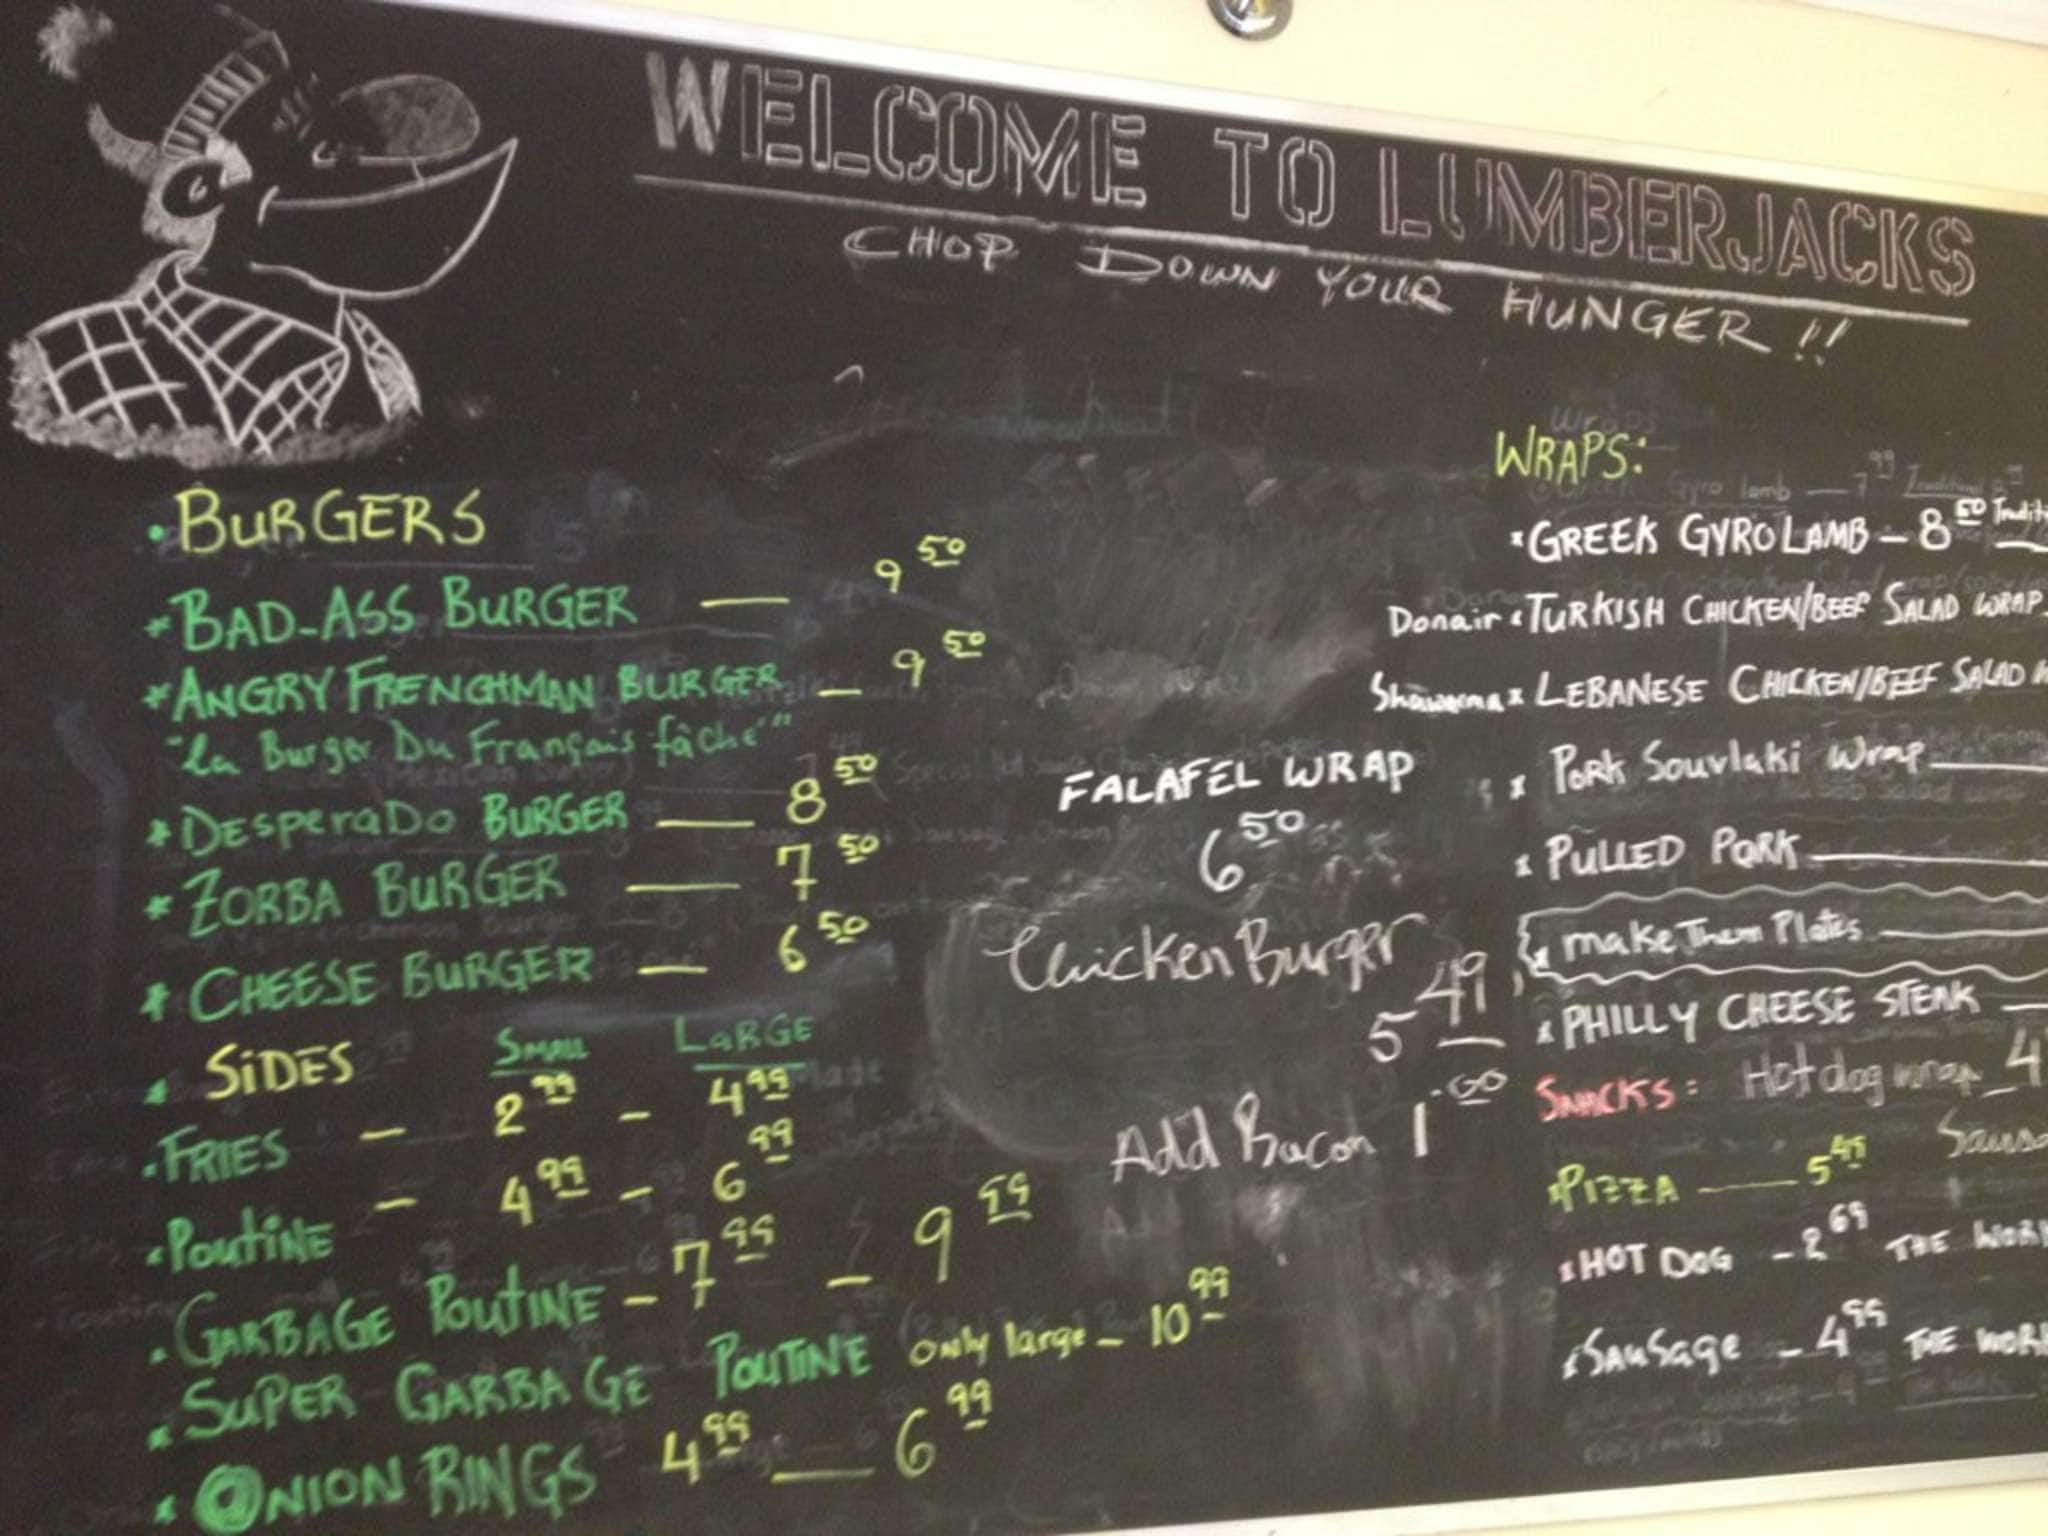 WELCOME TO LUMBERJACKS
CHOP DOWN YOUR HUNGER !!
• BURGERS
* BAD-ASS BURGER — 9 50
* ANGRY FRENCHMAN BURGER — 9 50
"La Burger Du Français fâché"
* DESPERADO BURGER — 8 50
* ZORBA BURGER — 7 50
* CHEESE BURGER — 6 50
* SIDES SMALL LARGE
• FRIES — 2 99 – 4 99
• POUTINE – 4 99 – 6 99
• GARBAGE POUTINE – 7 99 – 9 99
* SUPER GARBAGE POUTINE only large – 10 99
* ONION RINGS 4 99 — 6 99
FALAFEL WRAP
6 50
Chicken Burger
5 49
Add Bacon 1.00
WRAPS:
* GREEK GYRO LAMB – 8 50
Donair * TURKISH CHICKEN/BEEF SALAD WRAP
Shawarma * LEBANESE CHICKEN/BEEF SALAD
* PORK Souvlaki Wrap
* PULLED PORK
* make Them Plates
* PHILLY CHEESE STEAK
SNACKS: Hot dog wrap 4
* PIZZA — 5 49
* HOT DOG – 2 69 THE
* SAUSAGE – 4 99 THE